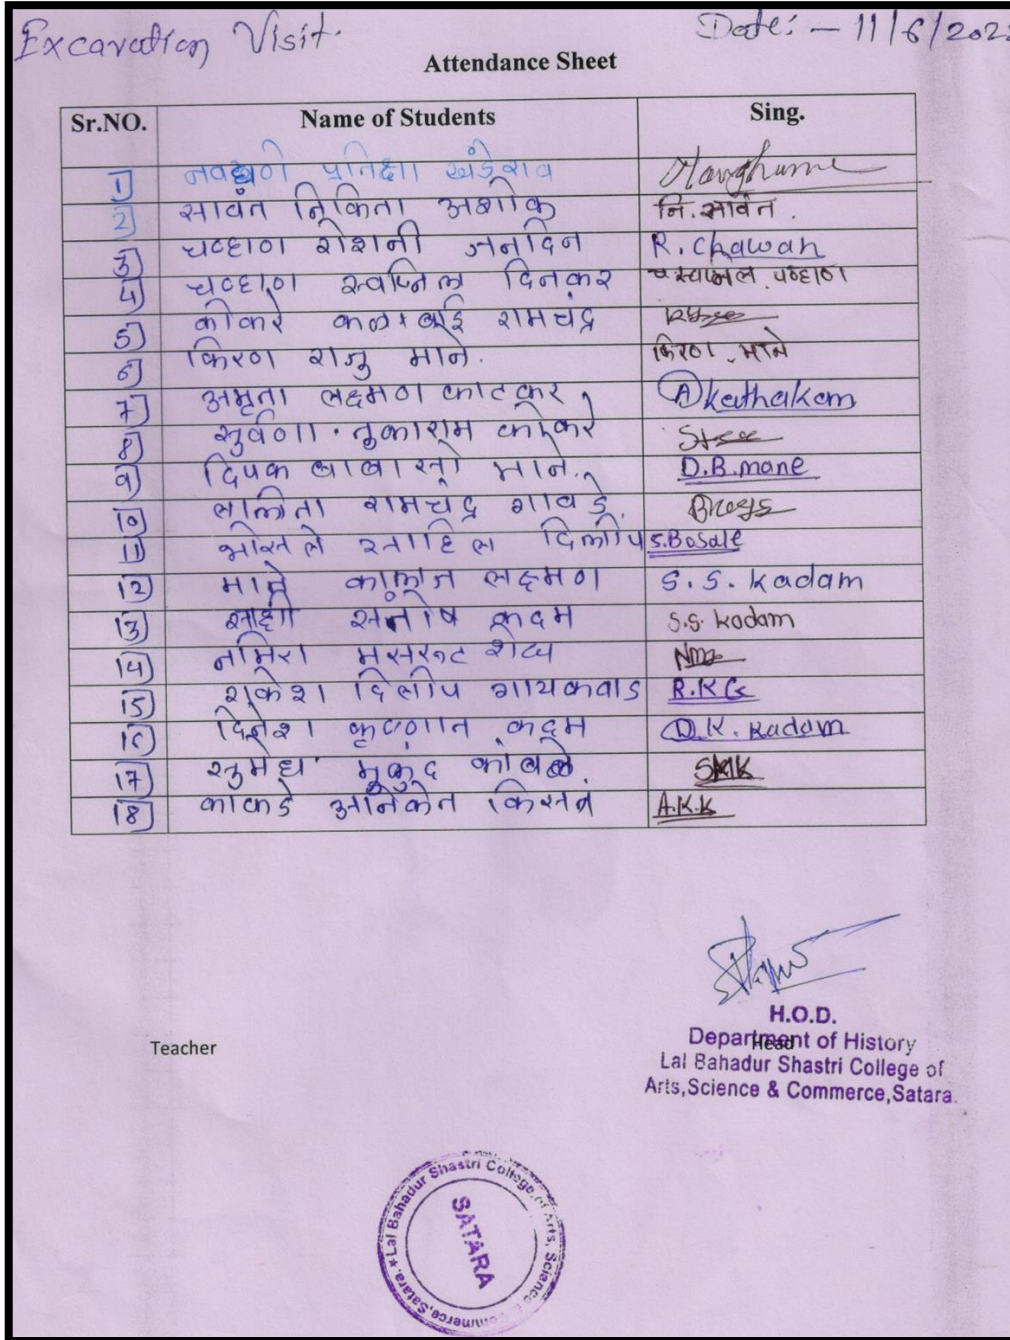 Excavation Visit.
Date: - 11/6/202
Attendance Sheet
Sr.NO. Name of Students Sing.
1 प्रतिक्षा खंडेराव
2 सावंत निकिता अशोक नि. सावंत.
3 चव्हाण रोशनी जनार्दन R. Chawan
4 चव्हाण स्वप्निल दिनकर स्वप्निल चव्हाण
5 कोकरे रामचंद्र
6 किरण राजु माने. किरण माने
7 अमृता लक्ष्मण काटकर A kathakam
8 सुर्वणा तुकाराम कोकरे
9 दिपक बाबासो माने. D.B.mane
10 ललिता रामचंद्र गावडे.
11 भोसले साहिल दिलीप S.Bosale
12 माने लक्ष्मण S. S. kadam
13 साक्षी संतोष कदम S.S. kadam
14 नमिरा शेख
15 राकेश दिलीप गायकवाड R.K.G
16 दिनेश कृष्णात कदम D.K. kadam
17 सुमेध मुकुंद कांबळे. SMK
18 काकडे अनिकेत किसन A.K.K
H.O.D.
Teacher
Head
Department of History
Lal Bahadur Shastri College of
Arts,Science & Commerce,Satara.
Lal Bahadur Shastri College of Arts, Science & Commerce,Satara.
SATARA